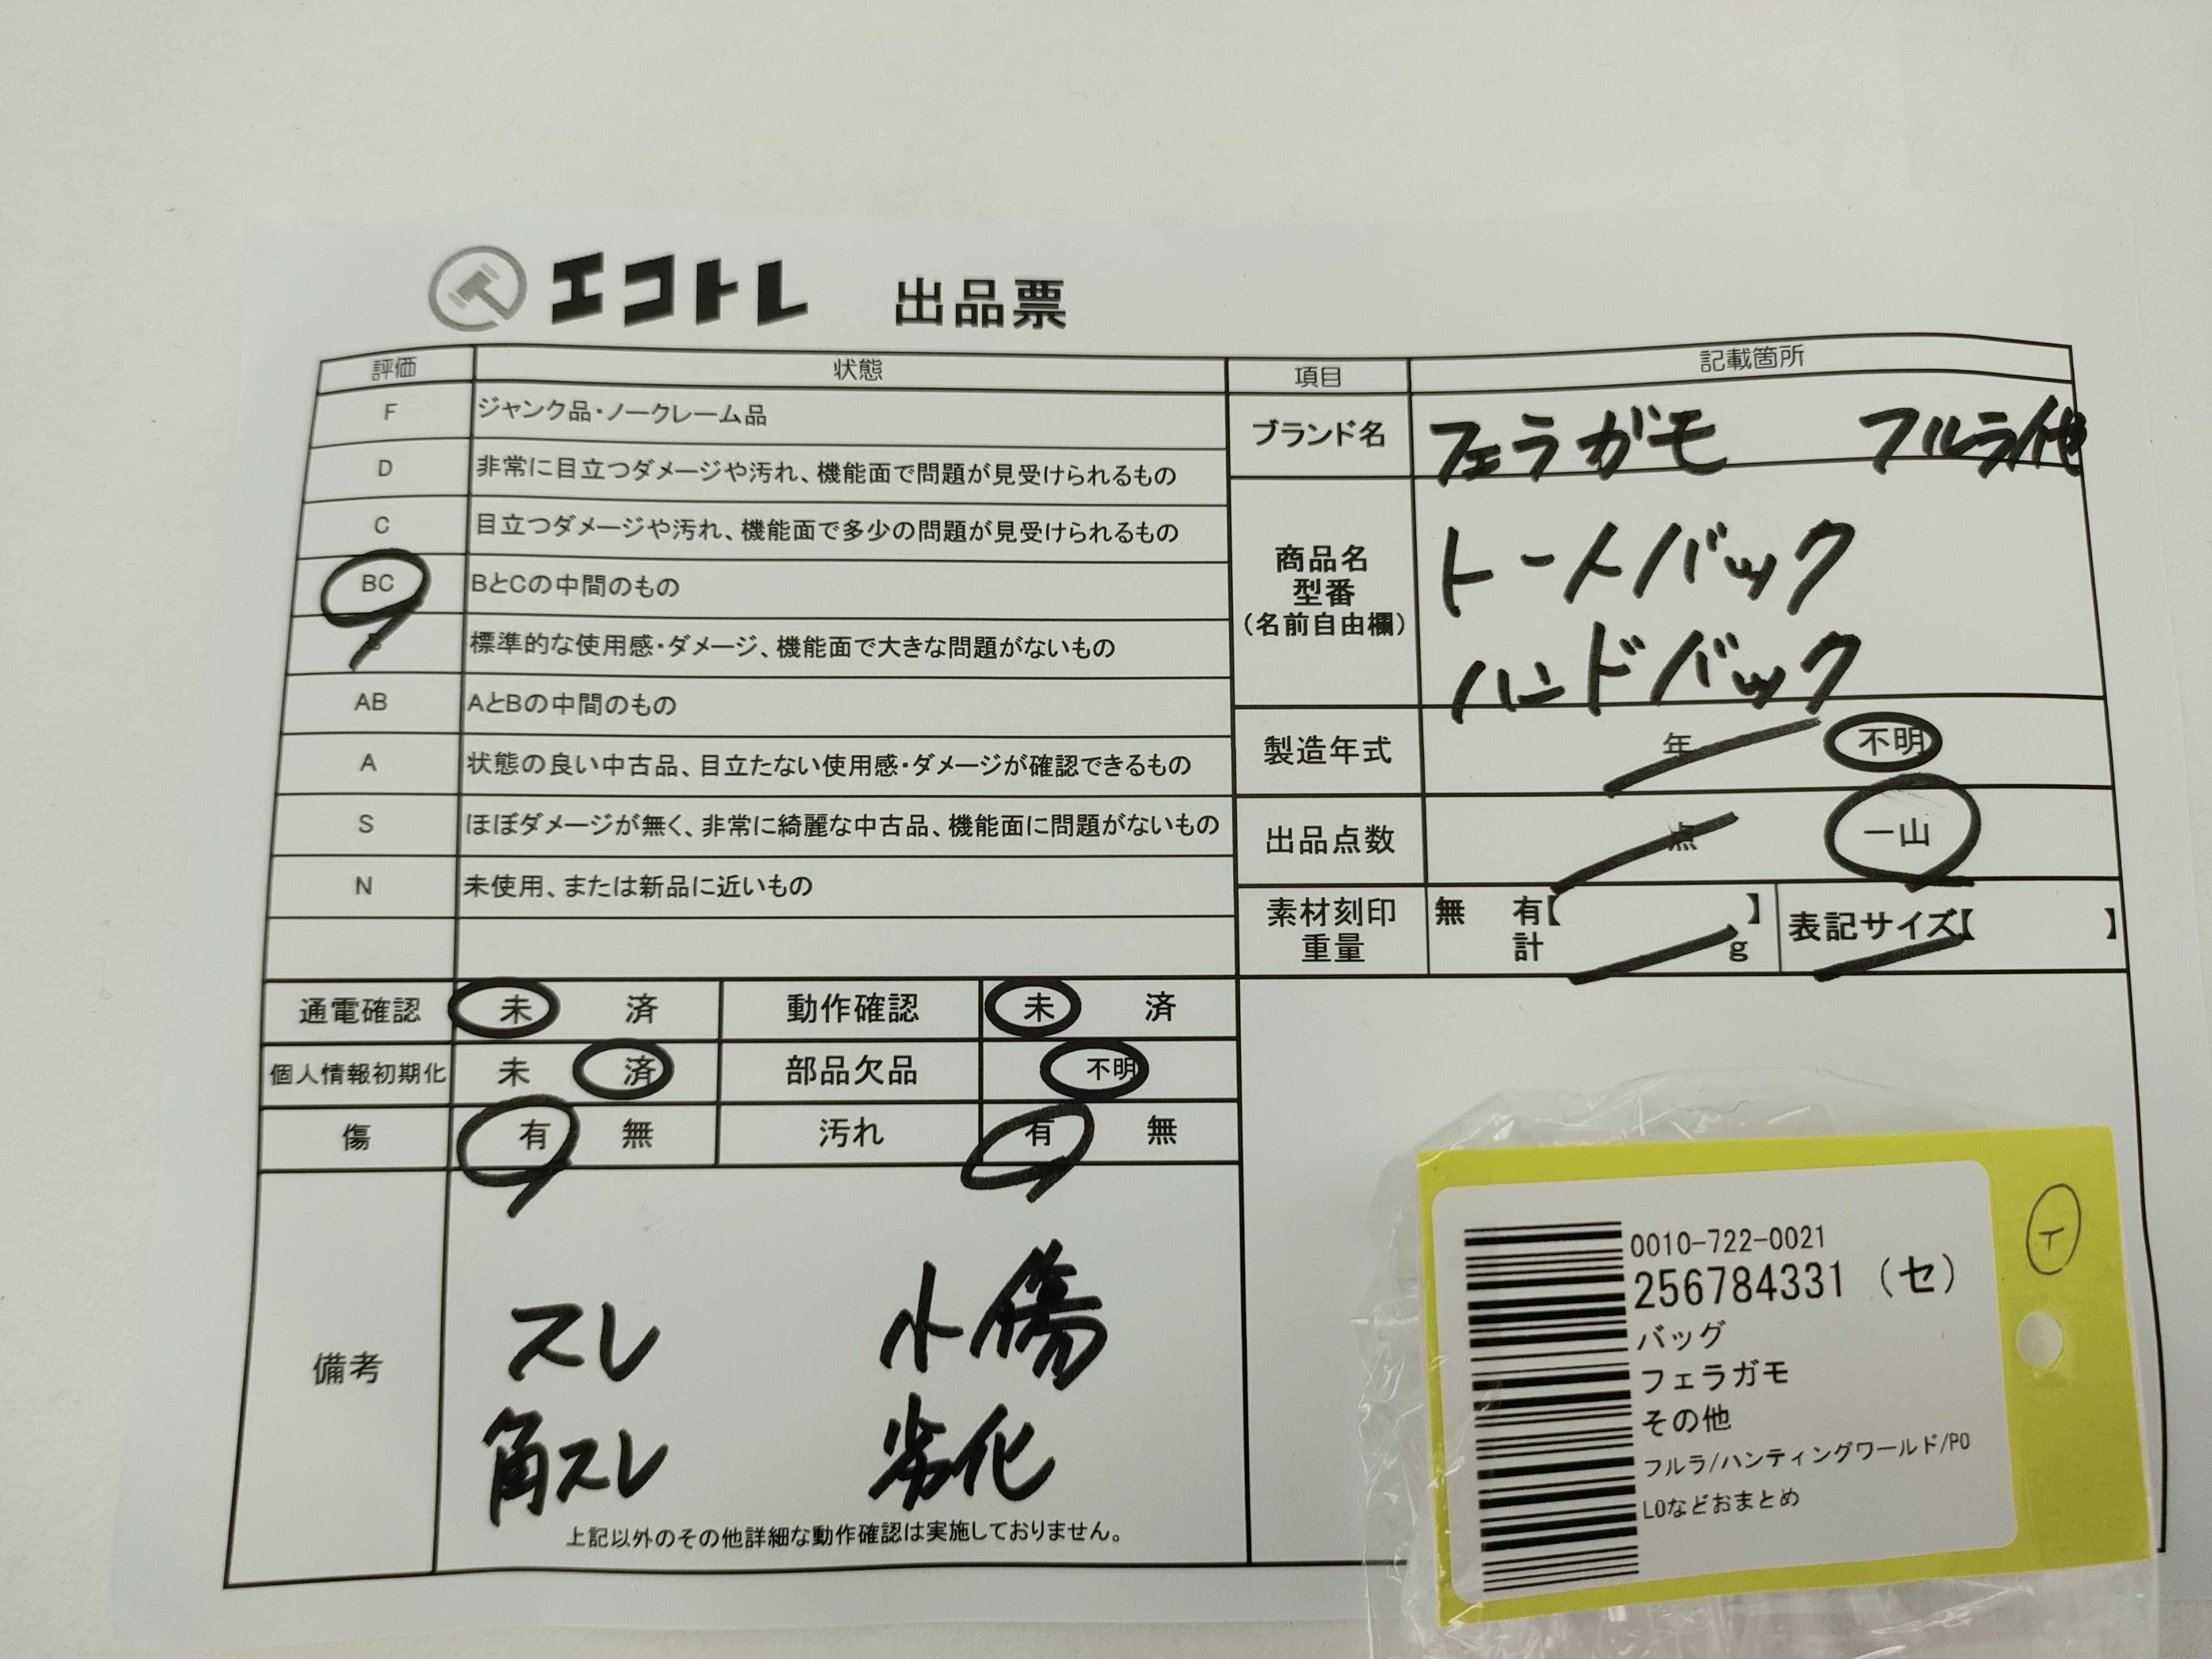 エコトレ 出品票
評価 状態 項目 記載箇所
F ジャンク品・ノークレーム品
D 非常に目立つダメージや汚れ、機能面で問題が見受けられるもの
C 目立つダメージや汚れ、機能面で多少の問題が見受けられるもの
BC BとCの中間のもの
標準的な使用感・ダメージ、機能面で大きな問題がないもの
AB AとBの中間のもの
A 状態の良い中古品、目立たない使用感・ダメージが確認できるもの
S ほぼダメージが無く、非常に綺麗な中古品、機能面に問題がないもの
N 未使用、または新品に近いもの
ブランド名 フェラガモ フルラ他
商品名
型番
(名前自由欄)
トートバック
ハンドバック
製造年式 年 不明
出品点数 点 一山
素材刻印 無 有【 】
重量 計 g
表記サイズ【 】
通電確認 未 済 動作確認 未 済
個人情報初期化 未 済 部品欠品 不明
傷 有 無 汚れ 有 無
備考
スレ 小傷
角スレ 劣化
上記以外のその他詳細な動作確認は実施しておりません。
0010-722-0021
256784331 (セ)
バッグ
フェラガモ
その他
フルラ/ハンティングワールド/PO
LOなどおまとめ